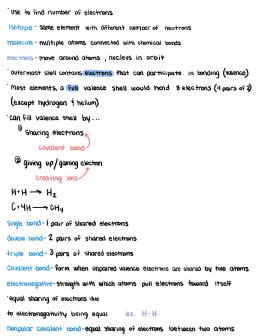 · use to find number of electrons
isotope - same element with different number of neutrons
molecule - multiple atoms connected with chemical bonds
electrons - move around atoms, nucleus in orbit
· outermost shell contains electrons that can participate in bonding (valence)
· Most elements, a full valence shell would hold 8 electrons (4 pairs of 2)
(except hydrogen & helium)
· can fill valence shell by...
① sharing electrons
covalent bond
② giving up/gaining electron
creating ions
H + H → H₂
C + 4H → CH₄
single bond - 1 pair of shared electrons
double bond - 2 pairs of shared electrons
triple bond - 3 pairs of shared electrons
Covalent bond - form when unpaired valence electrons are shared by two atoms
Electronegative - strength with which atoms pull electrons toward itself
· equal sharing of electrons due
to electronegativity being equal ex. H-H
nonpolar covalent bond - equal sharing of electrons between two atoms